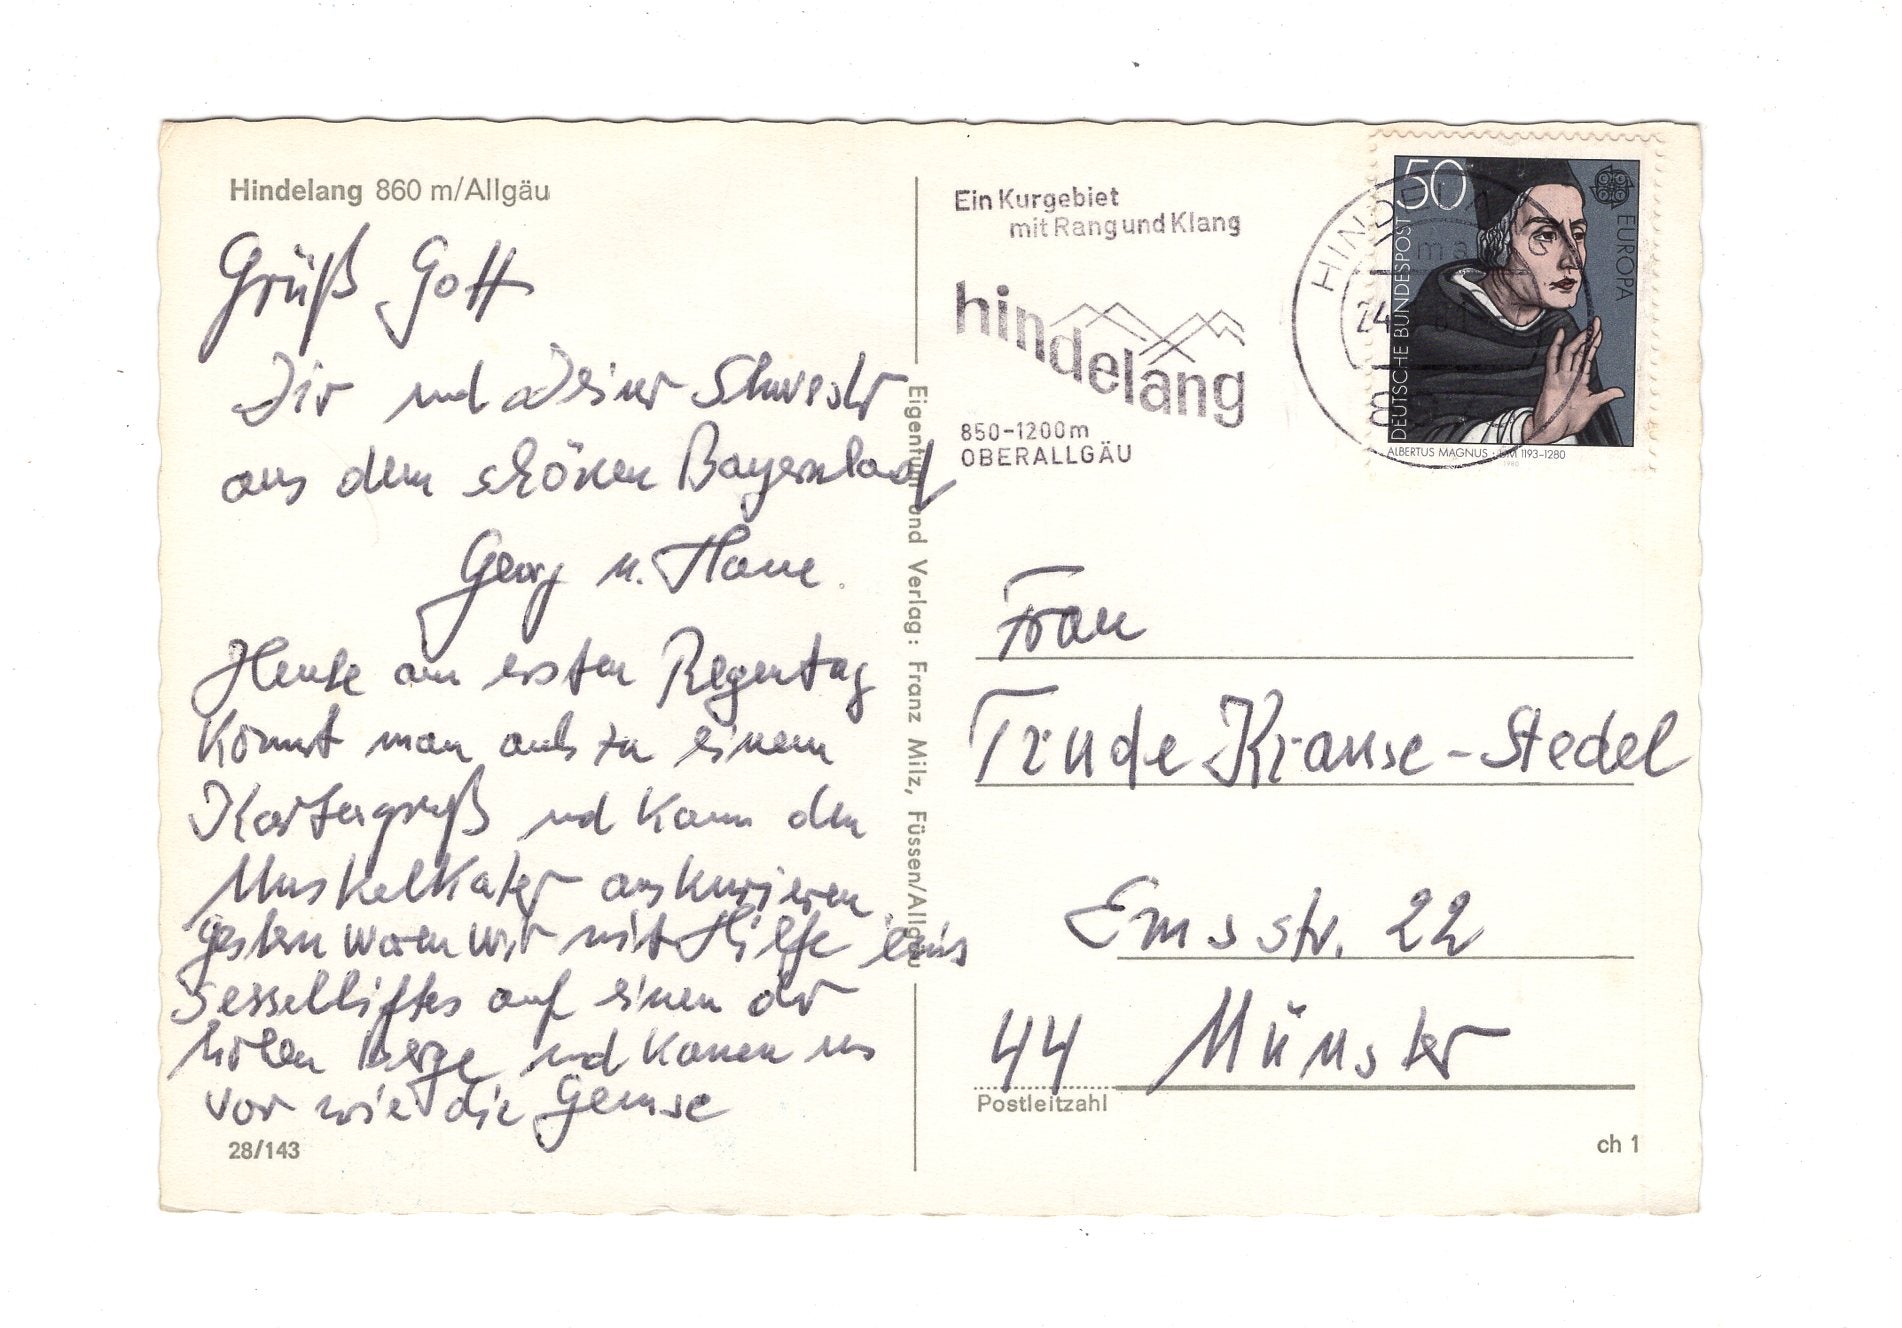 Hindelang 860 m/Allgäu
Grüß Gott
Dir und Deiner Schwester
aus dem schönen Bayernland
Georg u.
Heute am ersten Regentag
kommt man auch zu einem
Kartengruß und kann den
Muskelkater auskurieren,
gestern waren wir mit Hilfe eines
Sesselliftes auf einen der
hohen Berge und kamen uns
vor wie die Gemse
28/143
Eigentum und Verlag: Franz Milz, Füssen/Allgäu
Ein Kurgebiet
mit Rang und Klang
hindelang
850-1200m
OBERALLGÄU
HINDELANG
24
50
DEUTSCHE BUNDESPOST
EUROPA
ALBERTUS MAGNUS · UM 1193-1280
1980
Frau
Trude Krause-Stedel
Emsstr. 22
44 Münster
Postleitzahl
ch 1